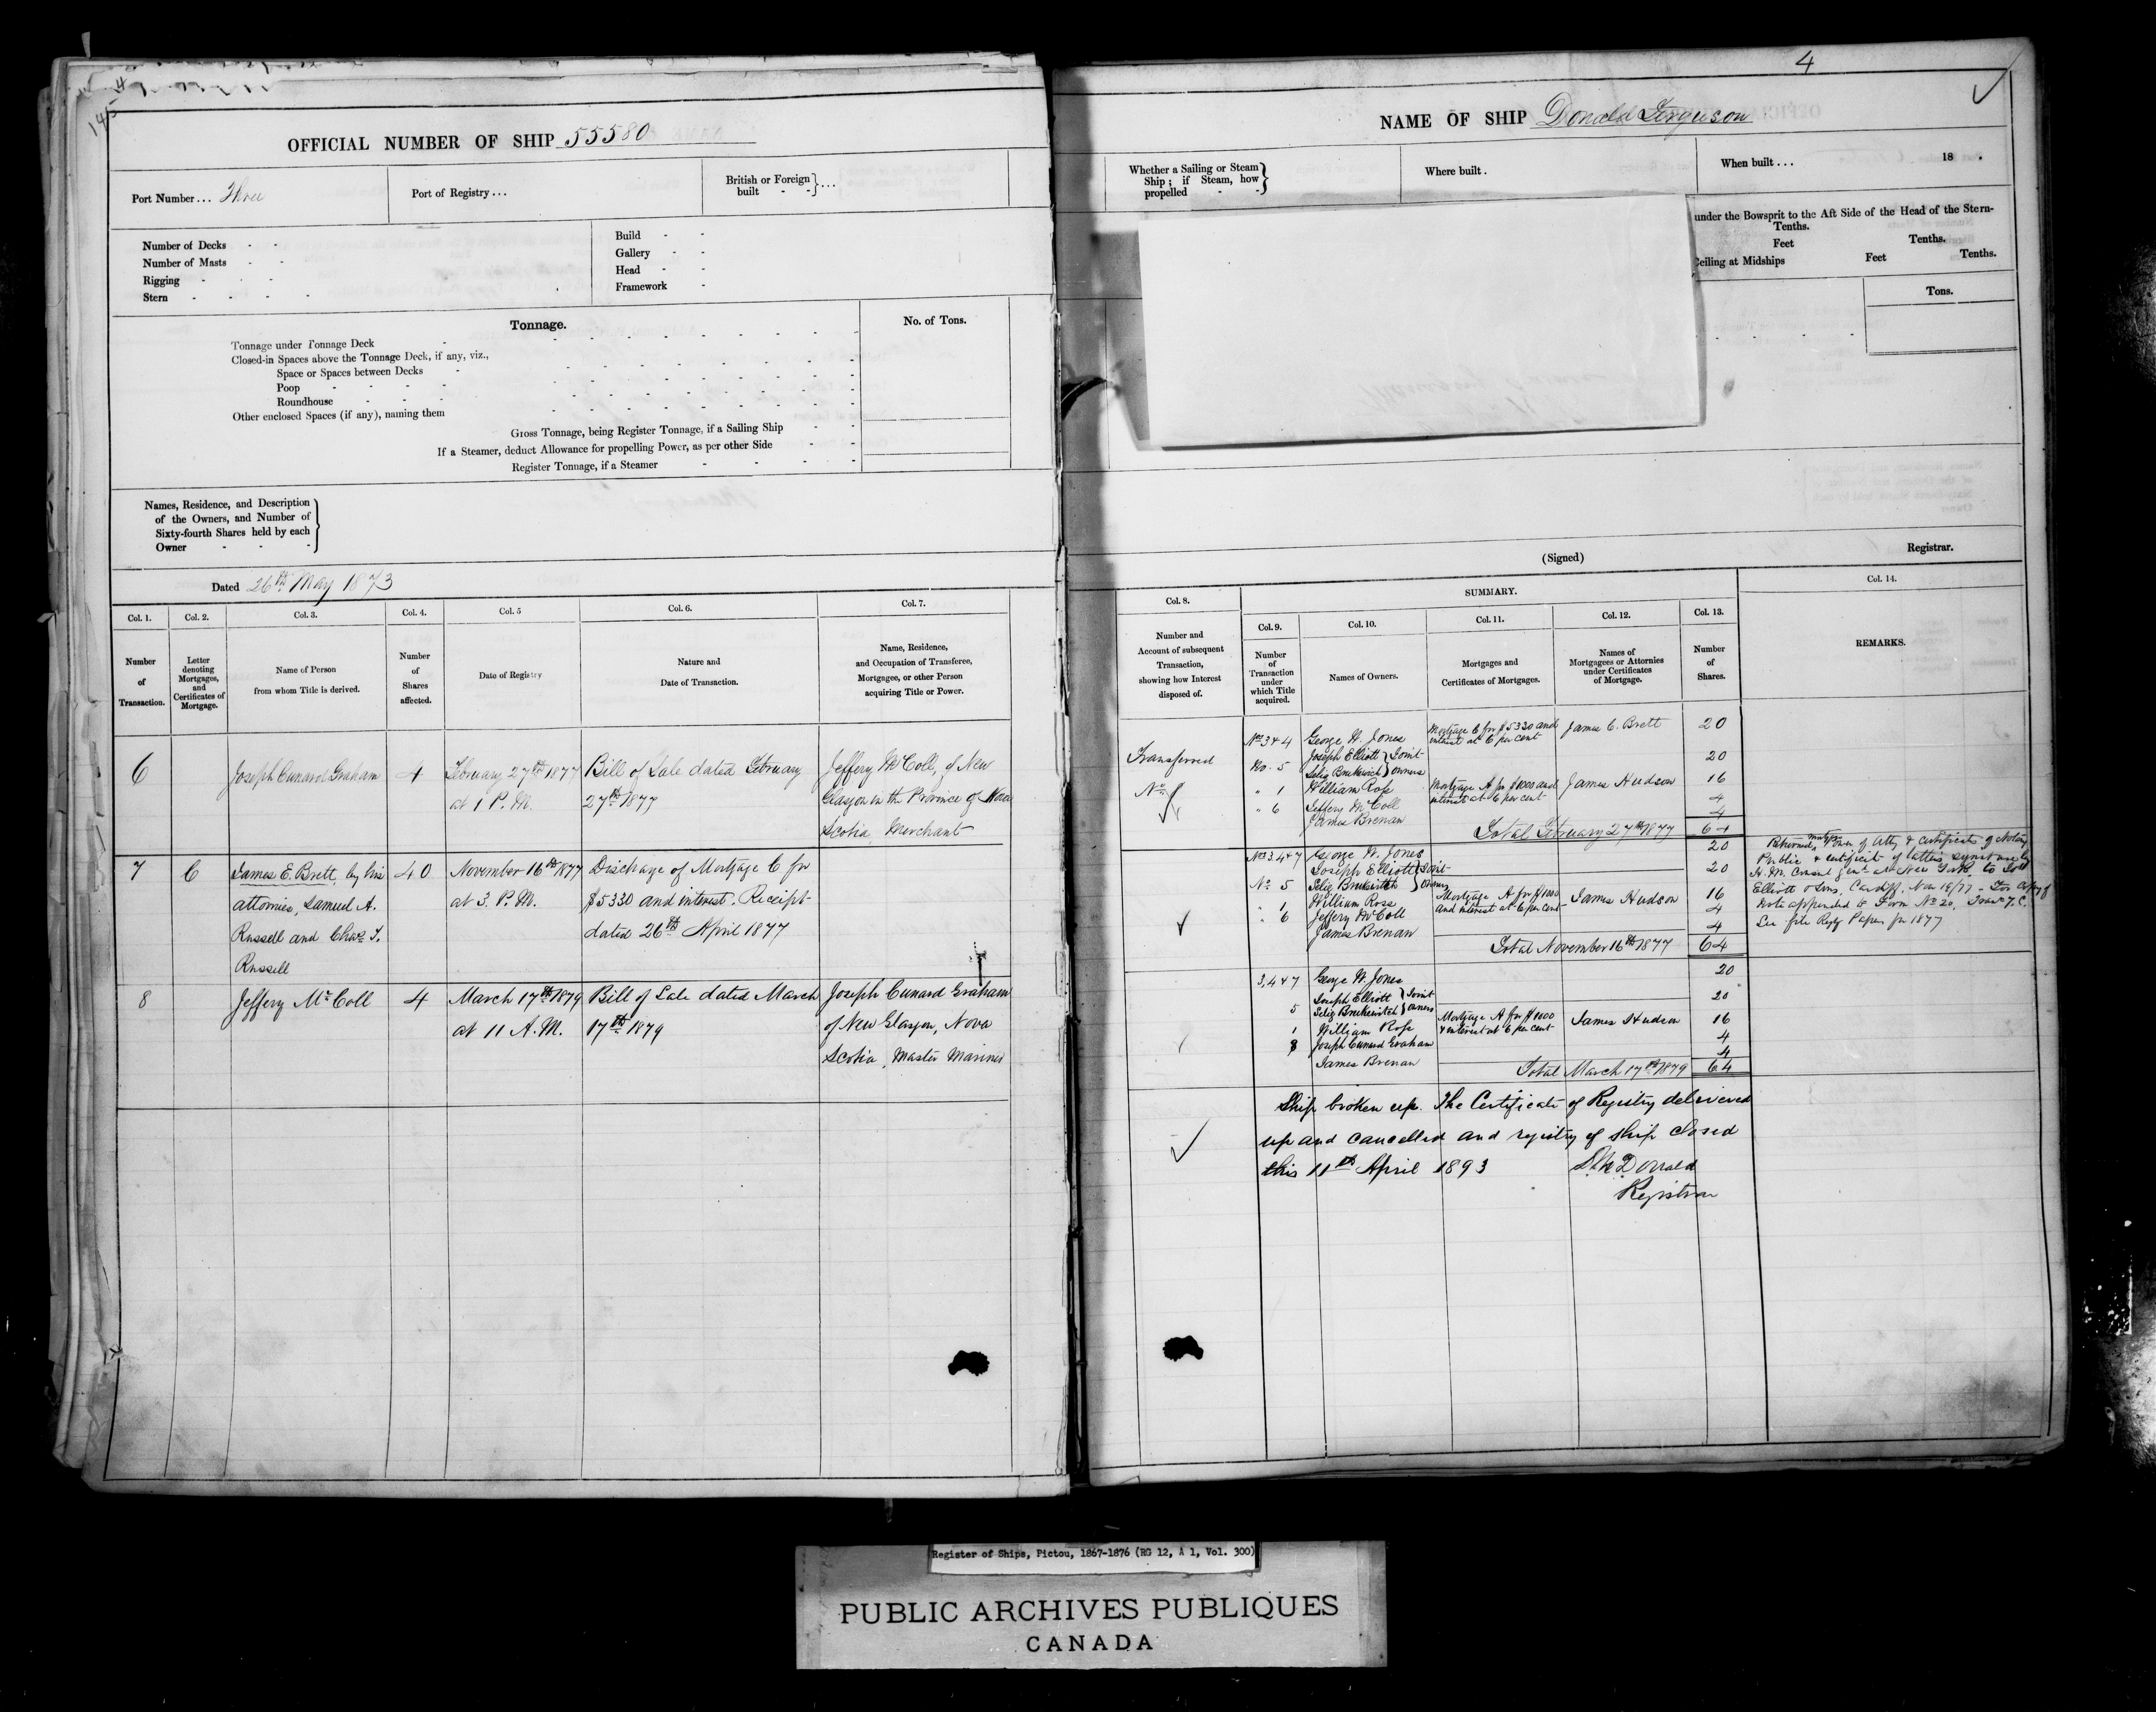 4
145
OFFICIAL NUMBER OF SHIP 55580
Port Number... Three
Port of Registry...
British or Foreign built - - } ...
Number of Decks - -
Number of Masts - -
Rigging - - -
Stern - - - - -
Build - -
Gallery - -
Head - -
Framework -
Tonnage.
No. of Tons.
Tonnage under Tonnage Deck
Closed-in Spaces above the Tonnage Deck, if any, viz.,
Space or Spaces between Decks
Poop
Roundhouse
Other enclosed Spaces (if any), naming them
Gross Tonnage, being Register Tonnage, if a Sailing Ship
If a Steamer, deduct Allowance for propelling Power, as per other Side
Register Tonnage, if a Steamer
Names, Residence, and Description
of the Owners, and Number of
Sixty-fourth Shares held by each
Owner
Dated 26th May 1873
Col. 1. Col. 2. Col. 3. Col. 4. Col. 5 Col. 6. Col. 7.
Number of Transaction.
Letter denoting Mortgages, and Certificates of Mortgage.
Name of Person from whom Title is derived.
Number of Shares affected.
Date of Registry
Nature and Date of Transaction.
Name, Residence, and Occupation of Transferee, Mortgagee, or other Person acquiring Title or Power.
6 Joseph Cunard Graham 4 February 27th 1877 Bill of Sale dated February Jeffery McColl, of New
at 1 P.M. 27th 1877 Glasgow in the Province of Nova
Scotia, Merchant
7 C James E. Brett, by his 40 November 16th 1877 Discharge of Mortgage C for
attornies, Samuel A. at 3. P.M. $5330 and interest. Receipt
Russell and Chas. T. dated 26th April 1877
Russell
8 Jeffery McColl 4 March 17th 1879 Bill of Sale dated March Joseph Cunard Graham
at 11 A.M. 17th 1879 of New Glasgow, Nova
Scotia, Master Mariner
4
NAME OF SHIP Donald Ferguson
Whether a Sailing or Steam
Ship; if Steam, how
propelled - -
Where built.
When built... 18 .
under the Bowsprit to the Aft Side of the Head of the Stern-
Tenths.
Feet Tenths.
Ceiling at Midships Feet Tenths.
Tons.
(Signed) Registrar.
Col. 8. SUMMARY. Col. 14.
Col. 9. Col. 10. Col. 11. Col. 12. Col. 13.
Number and Account of subsequent Transaction, showing how Interest disposed of.
Number of Transaction under which Title acquired.
Names of Owners.
Mortgages and Certificates of Mortgages.
Names of Mortgagees or Attornies under Certificates of Mortgage.
Number of Shares.
REMARKS.
Transferred
No.
Nos 3 & 4 George W. Jones Mortgage C for $5330 and interest at 6 per cent James E. Brett 20
No. 5 Joseph Elliott } Joint owners 20
" 1 William Ross Mortgage A for $1000 and interest at 6 per cent James Hudson 16
" 6 Jeffery McColl 4
James Brenan 4
Total February 27th 1877 64
Nos 3, 4 & 7 George W. Jones 20
No 5 Joseph Elliott } Joint owners 20
" 1 William Ross Mortgage A for $1000 and interest at 6 per cent James Hudson 16
" 6 Jeffery McColl 4
James Brenan 4
Total November 16th 1877 64
Returned Power of Atty & certificate of Notary
Public & certificate of signature by
H.M. Consul Genl. at New York to
Elliott & Sons, Cardiff, Nov 19/77 - For copy of
Note appended to Form No 20,
See file Regy Papers for 1877
3, 4 & 7 George W. Jones 20
5 Joseph Elliott } Joint owners 20
1 William Ross Mortgage A for $1000 & interest at 6 per cent James Hudson 16
8 Joseph Cunard Graham 4
James Brenan 4
Total March 17th 1879 64
Ship broken up. The Certificate of Registry delivered
up and cancelled and registry of ship closed
this 11th April 1893 D. McDonald
Registrar
Register of Ships, Pictou, 1867-1876 (RG 12, A 1, Vol. 300)
PUBLIC ARCHIVES PUBLIQUES
CANADA